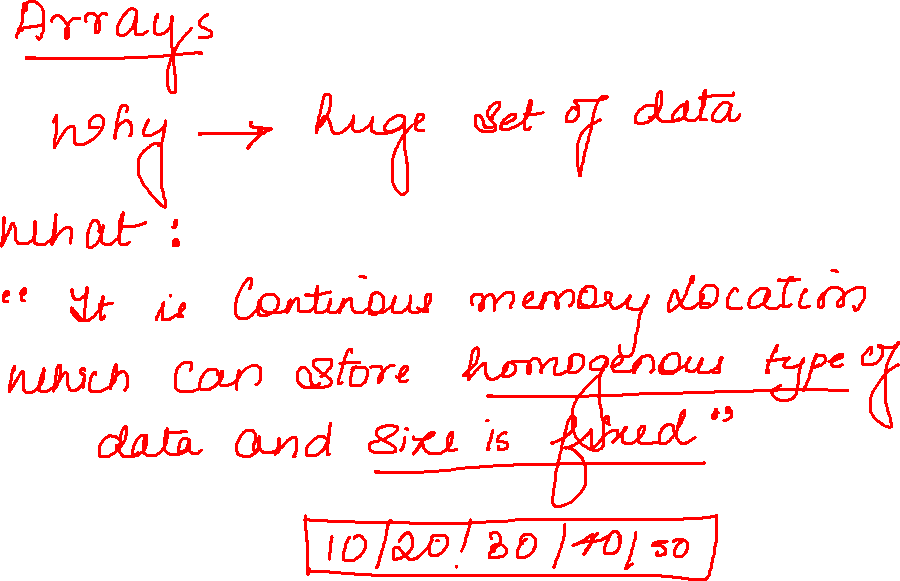 Arrays
Why → huge set of data
What :
"It is Continous memory Location
which can store homogenous type of
data and size is fixed"
10/20/30/40/50